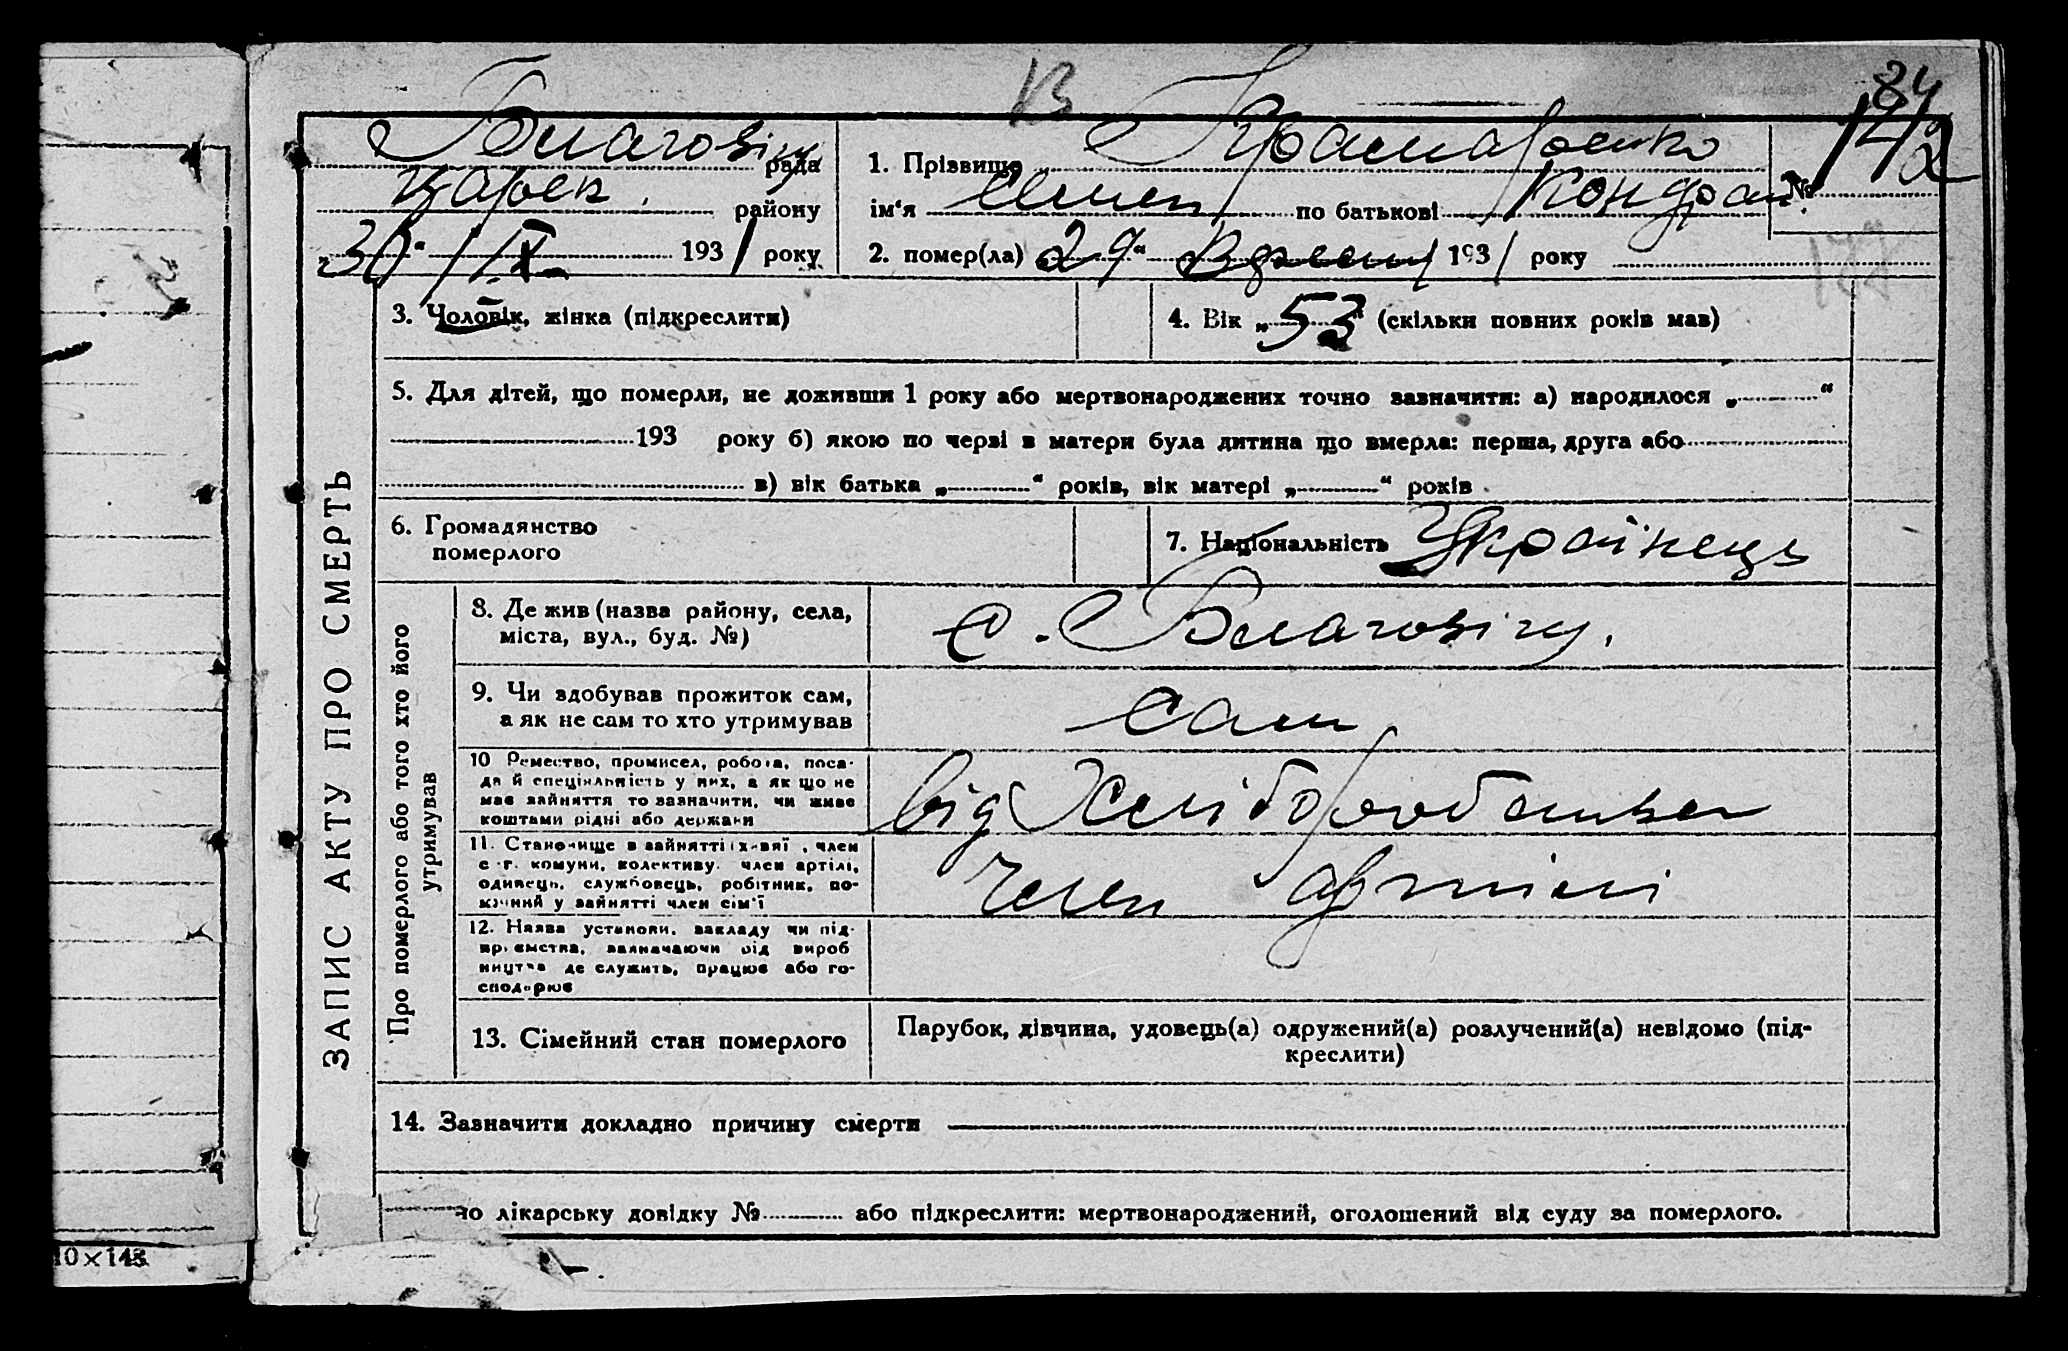 В
84
Благовіщ рада
1. Прізвище Крамаренко
№ 142
Царек. району
ім'я Семен по батькові Кондрат.
"30" / ІХ 1931 року
2. помер(ла) "29" Вересня 1931 року
3. Чоловік, жінка (підкреслити)
4. Вік „53" (скільки повних років мав)
5. Для дітей, що померли, не доживши 1 року або мертвонароджених точно зазначити: а) народилося „ "
193 року б) якою по черзі в матери була дитина що вмерла: перша, друга або
в) вік батька „ " років, вік матері „ " років
6. Громадянство
померлого
7. Національність Українець
ЗАПИС АКТУ ПРО СМЕРТЬ
Про померлого або того хто його
утримував
8. Де жив (назва району, села,
міста, вул., буд. №)
с. Благовіщ.
9. Чи здобував прожиток сам,
а як не сам то хто утримував
сам
10 Ремество, промисел, робота, поса-
да й спеціяльність у них, а як що не
має зайняття то зазначити, чи живе
коштами рідні або держави
від Хліборобства
11. Становище в зайнятті, член
с.-г. комуни, колективу. член артілі,
одинець, службовець, робітник, по-
мічний у зайнятті член сім'ї
член артілі
12. Назва установи, закладу чи під-
приємства, зазначаючи від вироб
ництва де служить, працює або го-
сподарює
13. Сімейний стан померлого
Парубок, дівчина, удовець(а) одружений(а) розлучений(а) невідомо (під-
креслити)
14. Зазначити докладно причину смерти
лікарську довідку № або підкреслити: мертвонароджений, оголошений від суду за померлого.
10×143